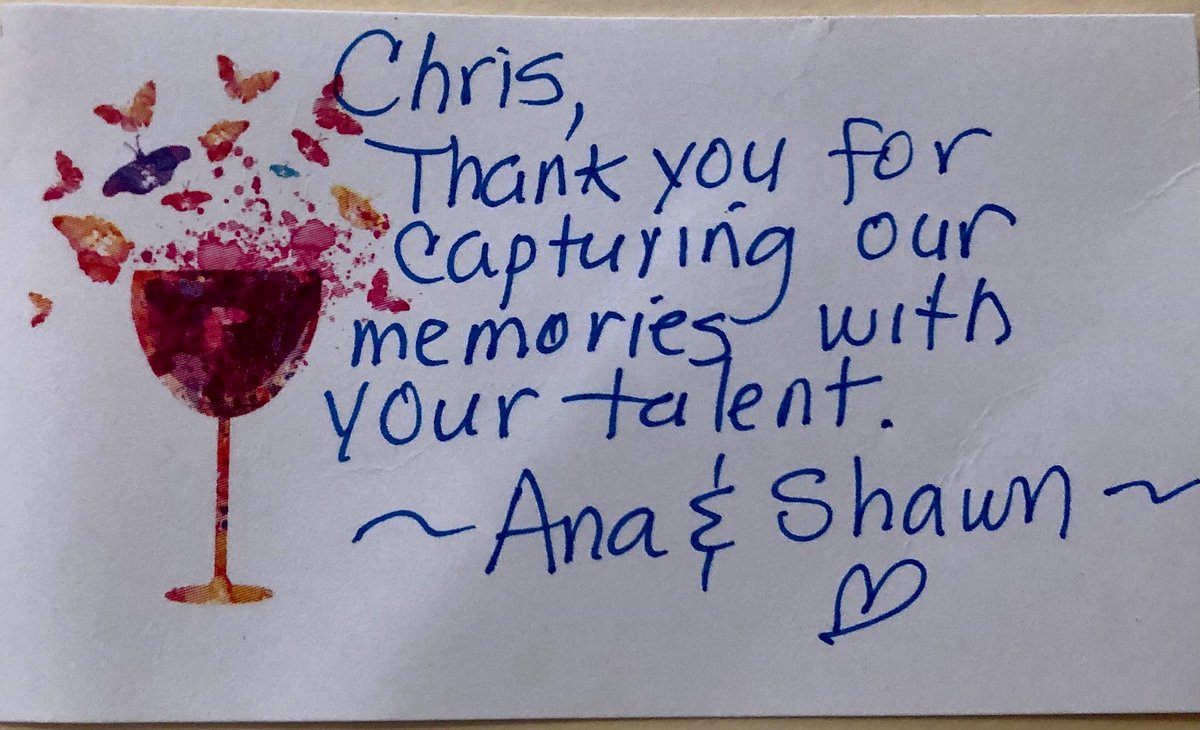 Chris,
Thank you for
capturing our
memories with
your talent.
~Ana & Shawn~
♡